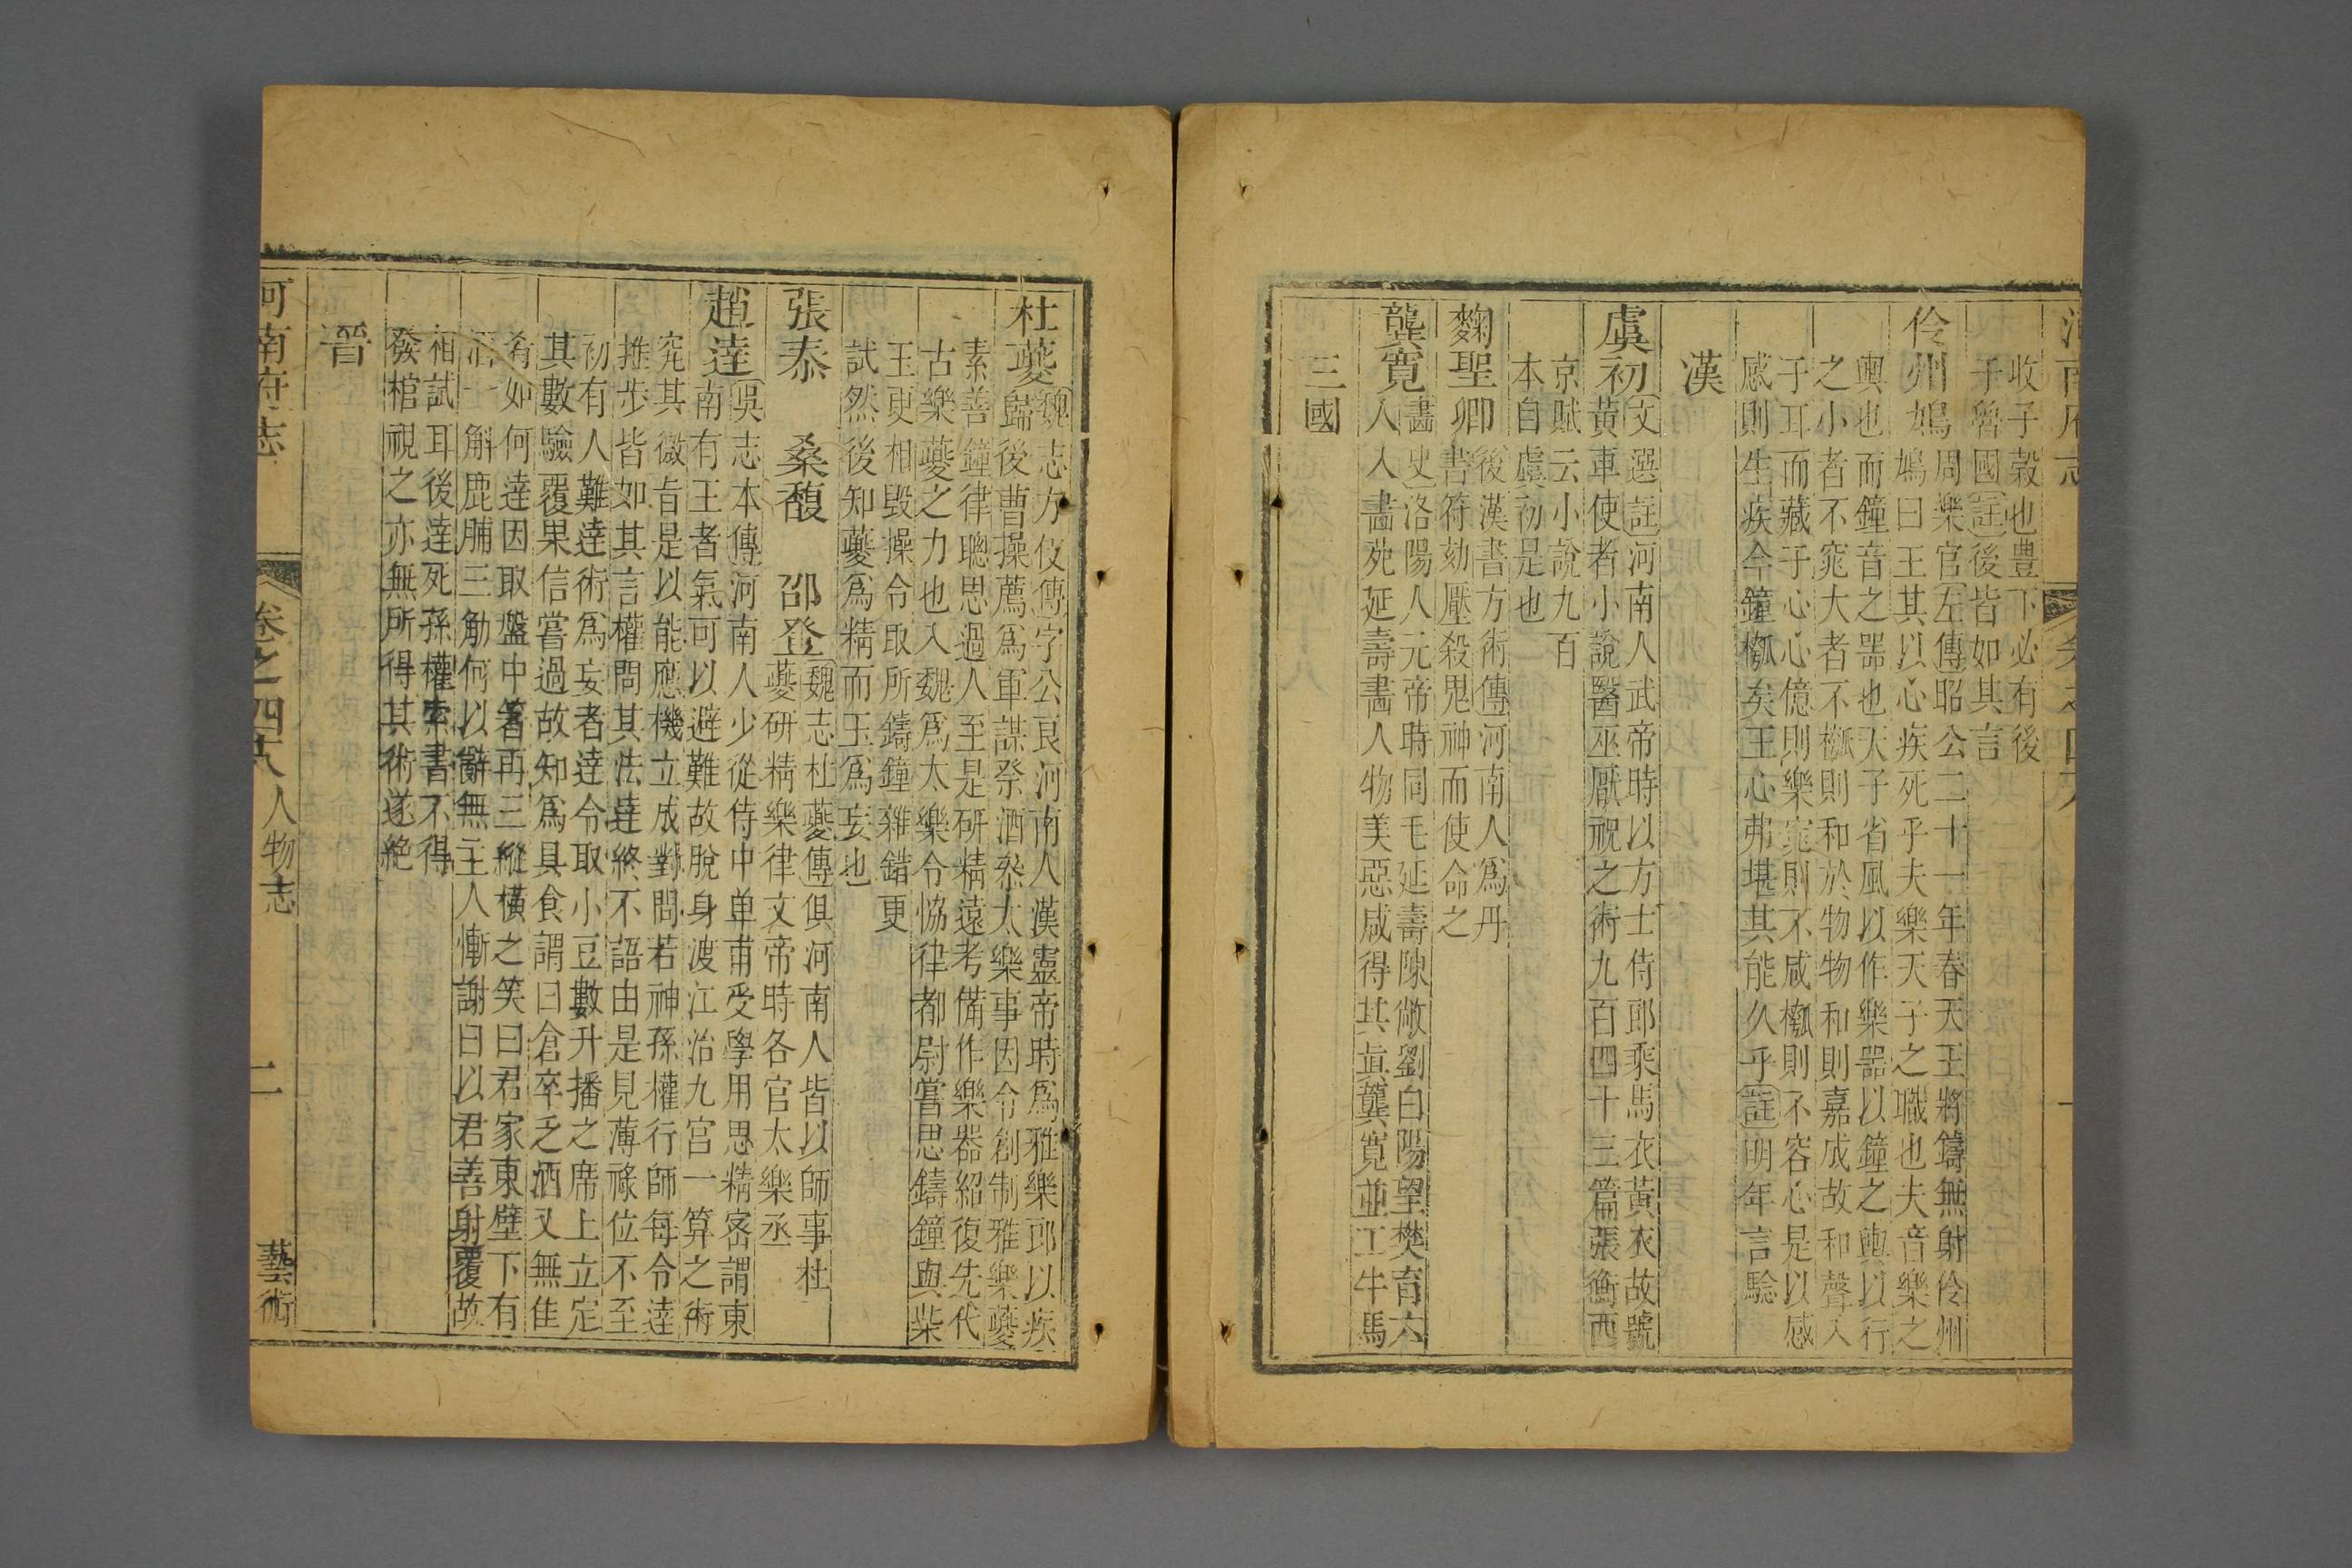 河南府志
收子穀也豊下必有後
子魯國註後皆如其言
伶州鳩周樂官左傳昭公二十一年春天王將鑄無射伶州
鳩曰王其以心疾死乎夫樂天子之職也夫音樂之
輿也而鐘音之器也天子省風以作樂器以鐘之輿以行
之小者不窕大者不槬則和於物物和則嘉成故和聲入
于耳而藏于心心億則樂窕則不咸槬則不容心是以感
感則生疾今鐘槬矣王心弗堪其能久乎註明年言驗
漢
虞初文選註河南人武帝時以方士侍郎乘馬衣黃衣故號
黃車使者小說醫巫厭祝之術九百四十三篇張衡西
京賦云小說九百
本自虞初是也
麴聖卿後漢書方術傳河南人爲丹
書符劾壓殺鬼神而使命之
龔寬畵史洛陽人元帝時同毛延壽陳敞劉白陽望樊育六
人入畵苑延壽畵人物美惡咸得其眞龔寬並工牛馬
三國
杜夔魏志方伎傳字公良河南人漢靈帝時爲雅樂郎以疾
歸後曹操薦爲軍謀祭酒叅太樂事因令創制雅樂夔
素善鐘律聰思過人至是研精遠考備作樂器紹復先代
古樂夔之力也入魏爲太樂令恊律都尉嘗思鑄鐘與柴
玉更相毀操令取所鑄鐘雜錯更
試然後知夔爲精而玉爲妄也
張泰 桑馥 邵登魏志杜夔傳俱河南人皆以師事杜
夔研精樂律文帝時各官太樂丞
趙達吳志本傳河南人少從侍中单甫受學用思精宻謂東
南有王者氣可以避難故脫身渡江治九宫一算之術
究其微旨是以能應機立成對問若神孫權行師每令達
推步皆如其言權問其法達終不語由是見薄祿位不至
初有人難達術爲妄者達令取小豆數升播之席上立定
其數驗覆果信嘗過故知爲具食謂曰倉卒乏酒又無佳
肴如何達因取盤中箸再三縱橫之笑曰君家東壁下有
酒一斛鹿脯三觔何以辭無主人慚謝曰以君善射覆故
相試耳後達死孫權索書不得
發棺視之亦無所得其術遂絶
晉
河南府志 卷之四十八 人物志 二 藝術